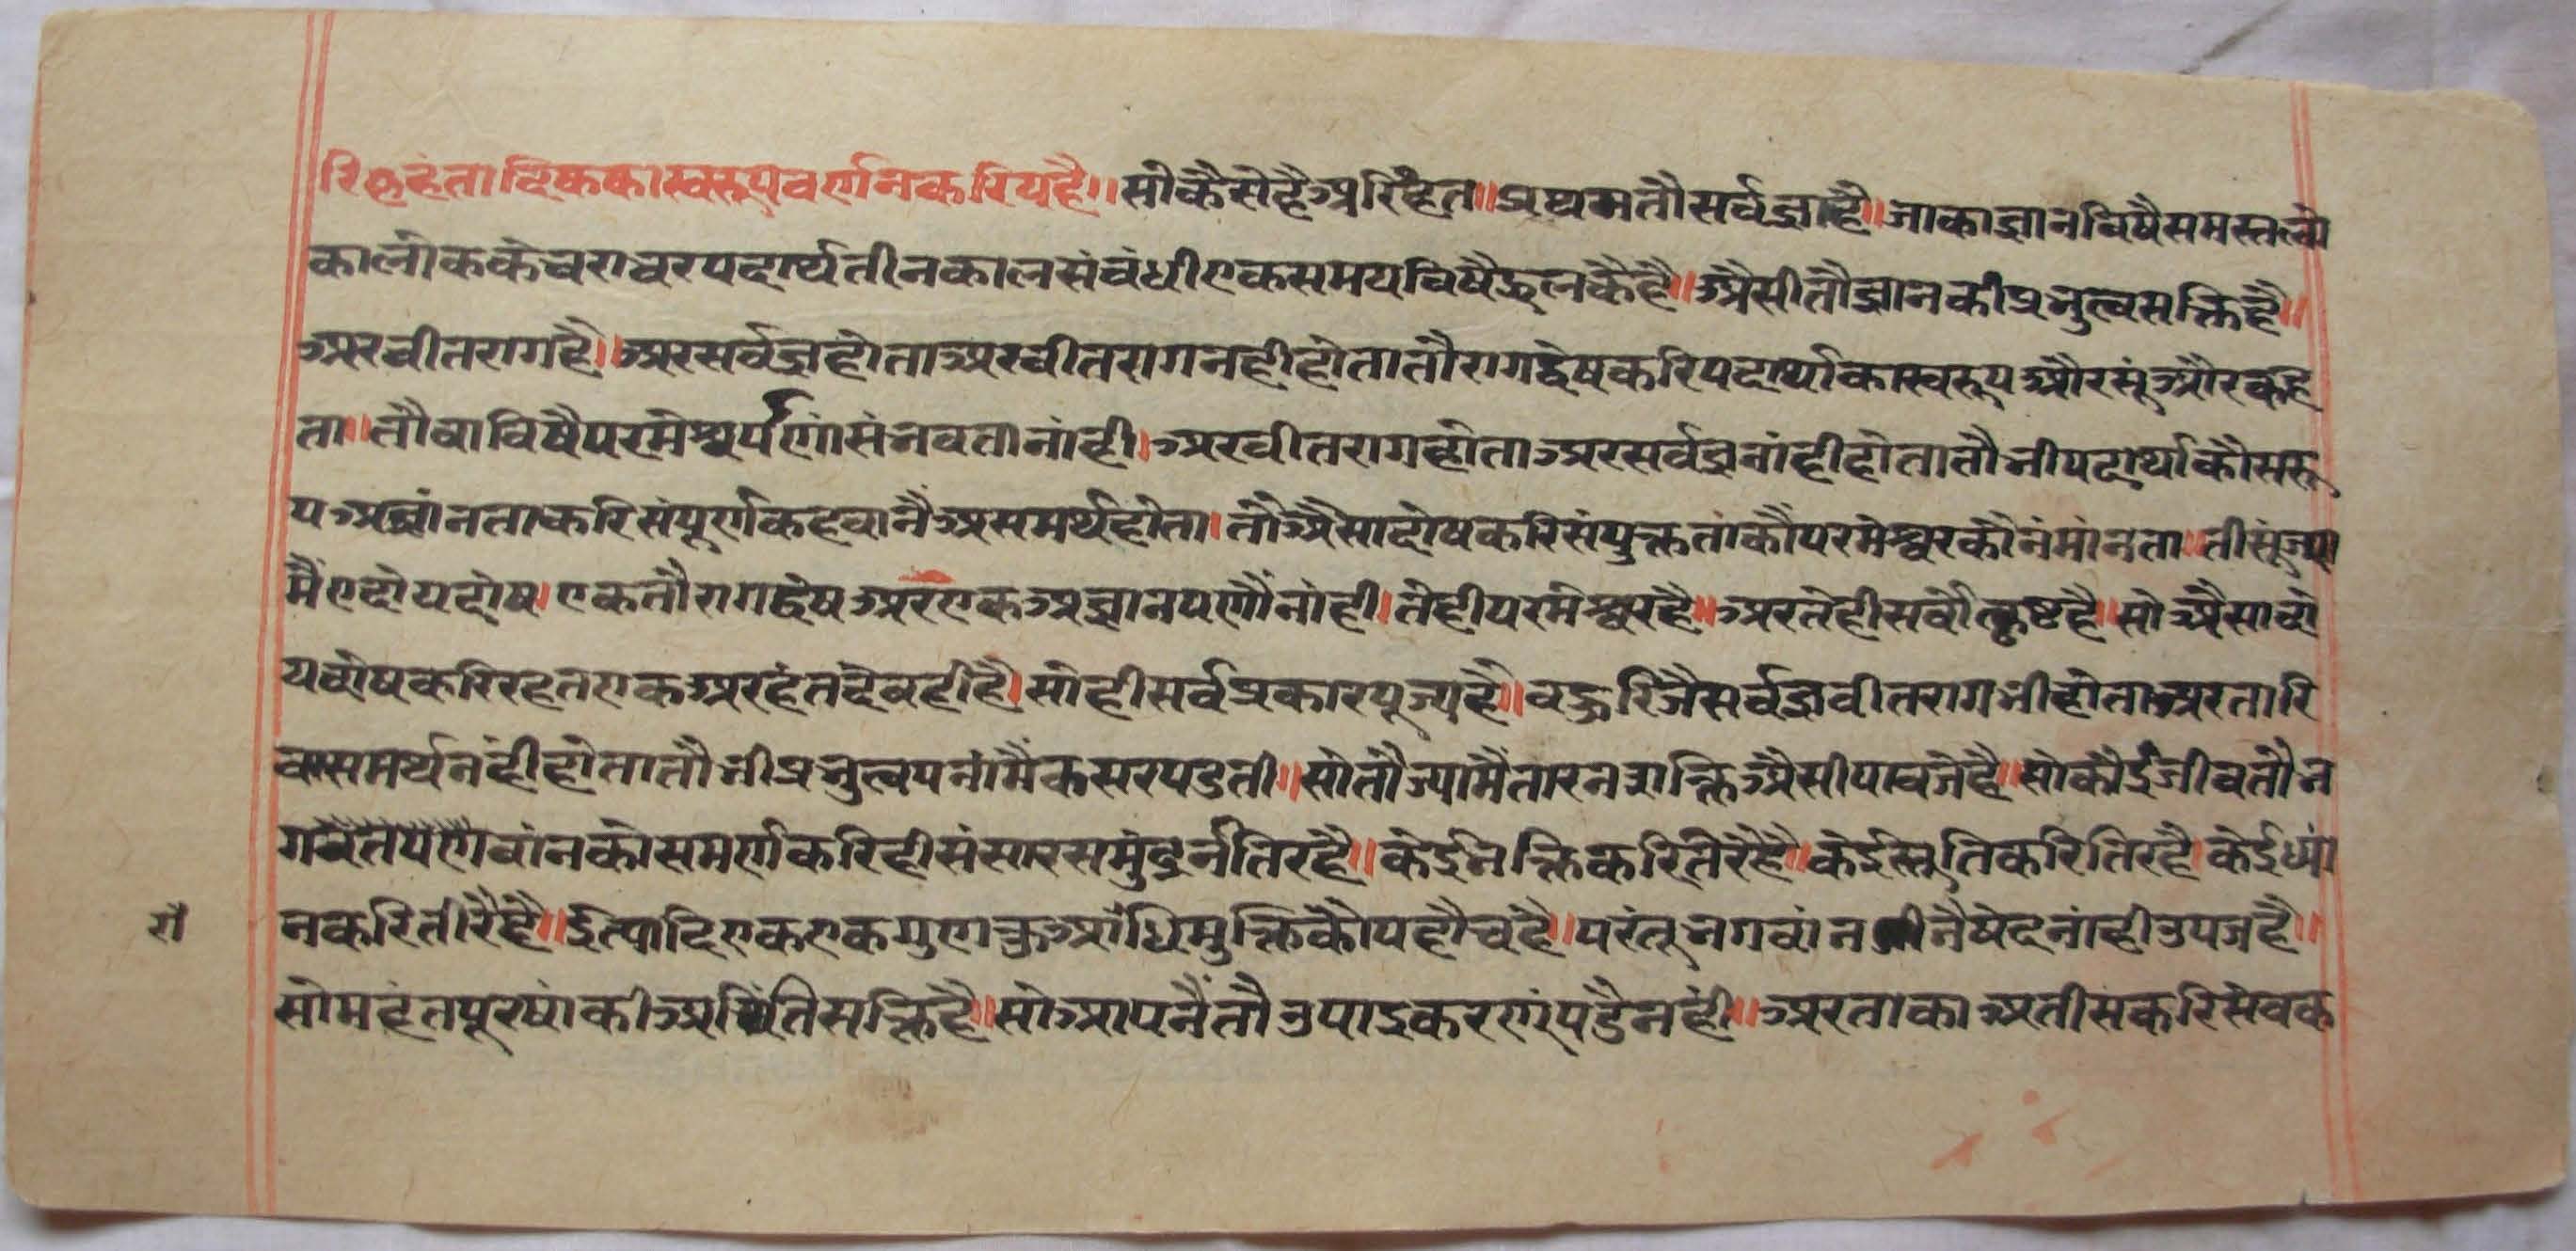 रिहंतादिकका स्वरूप वर्णन करियहै॥ सो कैसे है अरिहंत॥ प्रथम तौ सर्वज्ञ है॥ जाका ज्ञान विषै समस्त लो
कालोक के चराचर पदार्थ तीन काल संबंधी एक समय विषै झलकै है॥ अैसी तौ ज्ञान की प्रभुत्व सक्ति है॥
अर वीतराग है॥ अर सर्वज्ञ होता अर वीतराग नही होता तौ राग द्वेष करि पदार्था का स्वरूप और सूं और कहि
ता॥ तौ वा विषै परमेश्वर्पणां संभवता नांही। अर वीतराग होता अर सर्वज्ञ नांही होता तौ भी पदार्था कौ सरू
प अज्ञांनता करि संपूर्ण कहवा नै असमर्थ होता। तौ अैसा दोष करि संयुक्त तांकौ परमेश्वर कौनं मांनता॥ ती सूं ज्या
मैं ए दोय दोष। एक तौ राग द्वेष अर एक अज्ञानपणौं नांही। तेही परमेश्वर है॥ अर तेही सर्वोत्कृष्ट है॥ सो अैसा दो
य दोष करि रहत एक अरहंत देव ही है। सो ही सर्व प्रकार पूज्य है॥ बहुरि जै सर्वज्ञ वीतराग भी होता अर तारि
वा समर्थ नंही होता तौ भी प्रभुत्वपनां मैं कसर पडती॥ सो तौ ज्यामैं तारन शक्ति अैसी पावजे है॥ सो कोई जीव तौ भ
गवांन को समर्ण करि ही संसार समुंद्र नै तिर है॥ केई भक्ति करि तिरै है॥ केई स्तुति करि तिर है। केई ध्यां
न करि तिरै है॥ इत्यादि एक एक गुण कू आराधि मुक्ति कौ पहौच है॥ परंतु भगवांन जी नै षेद नांही उपज है॥
गै
सो महंत पुरषां की अचिंति सक्ति है॥ सो आप नैं तौ उपाइ करणूं पडै नहीं॥ अर ताका अतीस करि सेवक